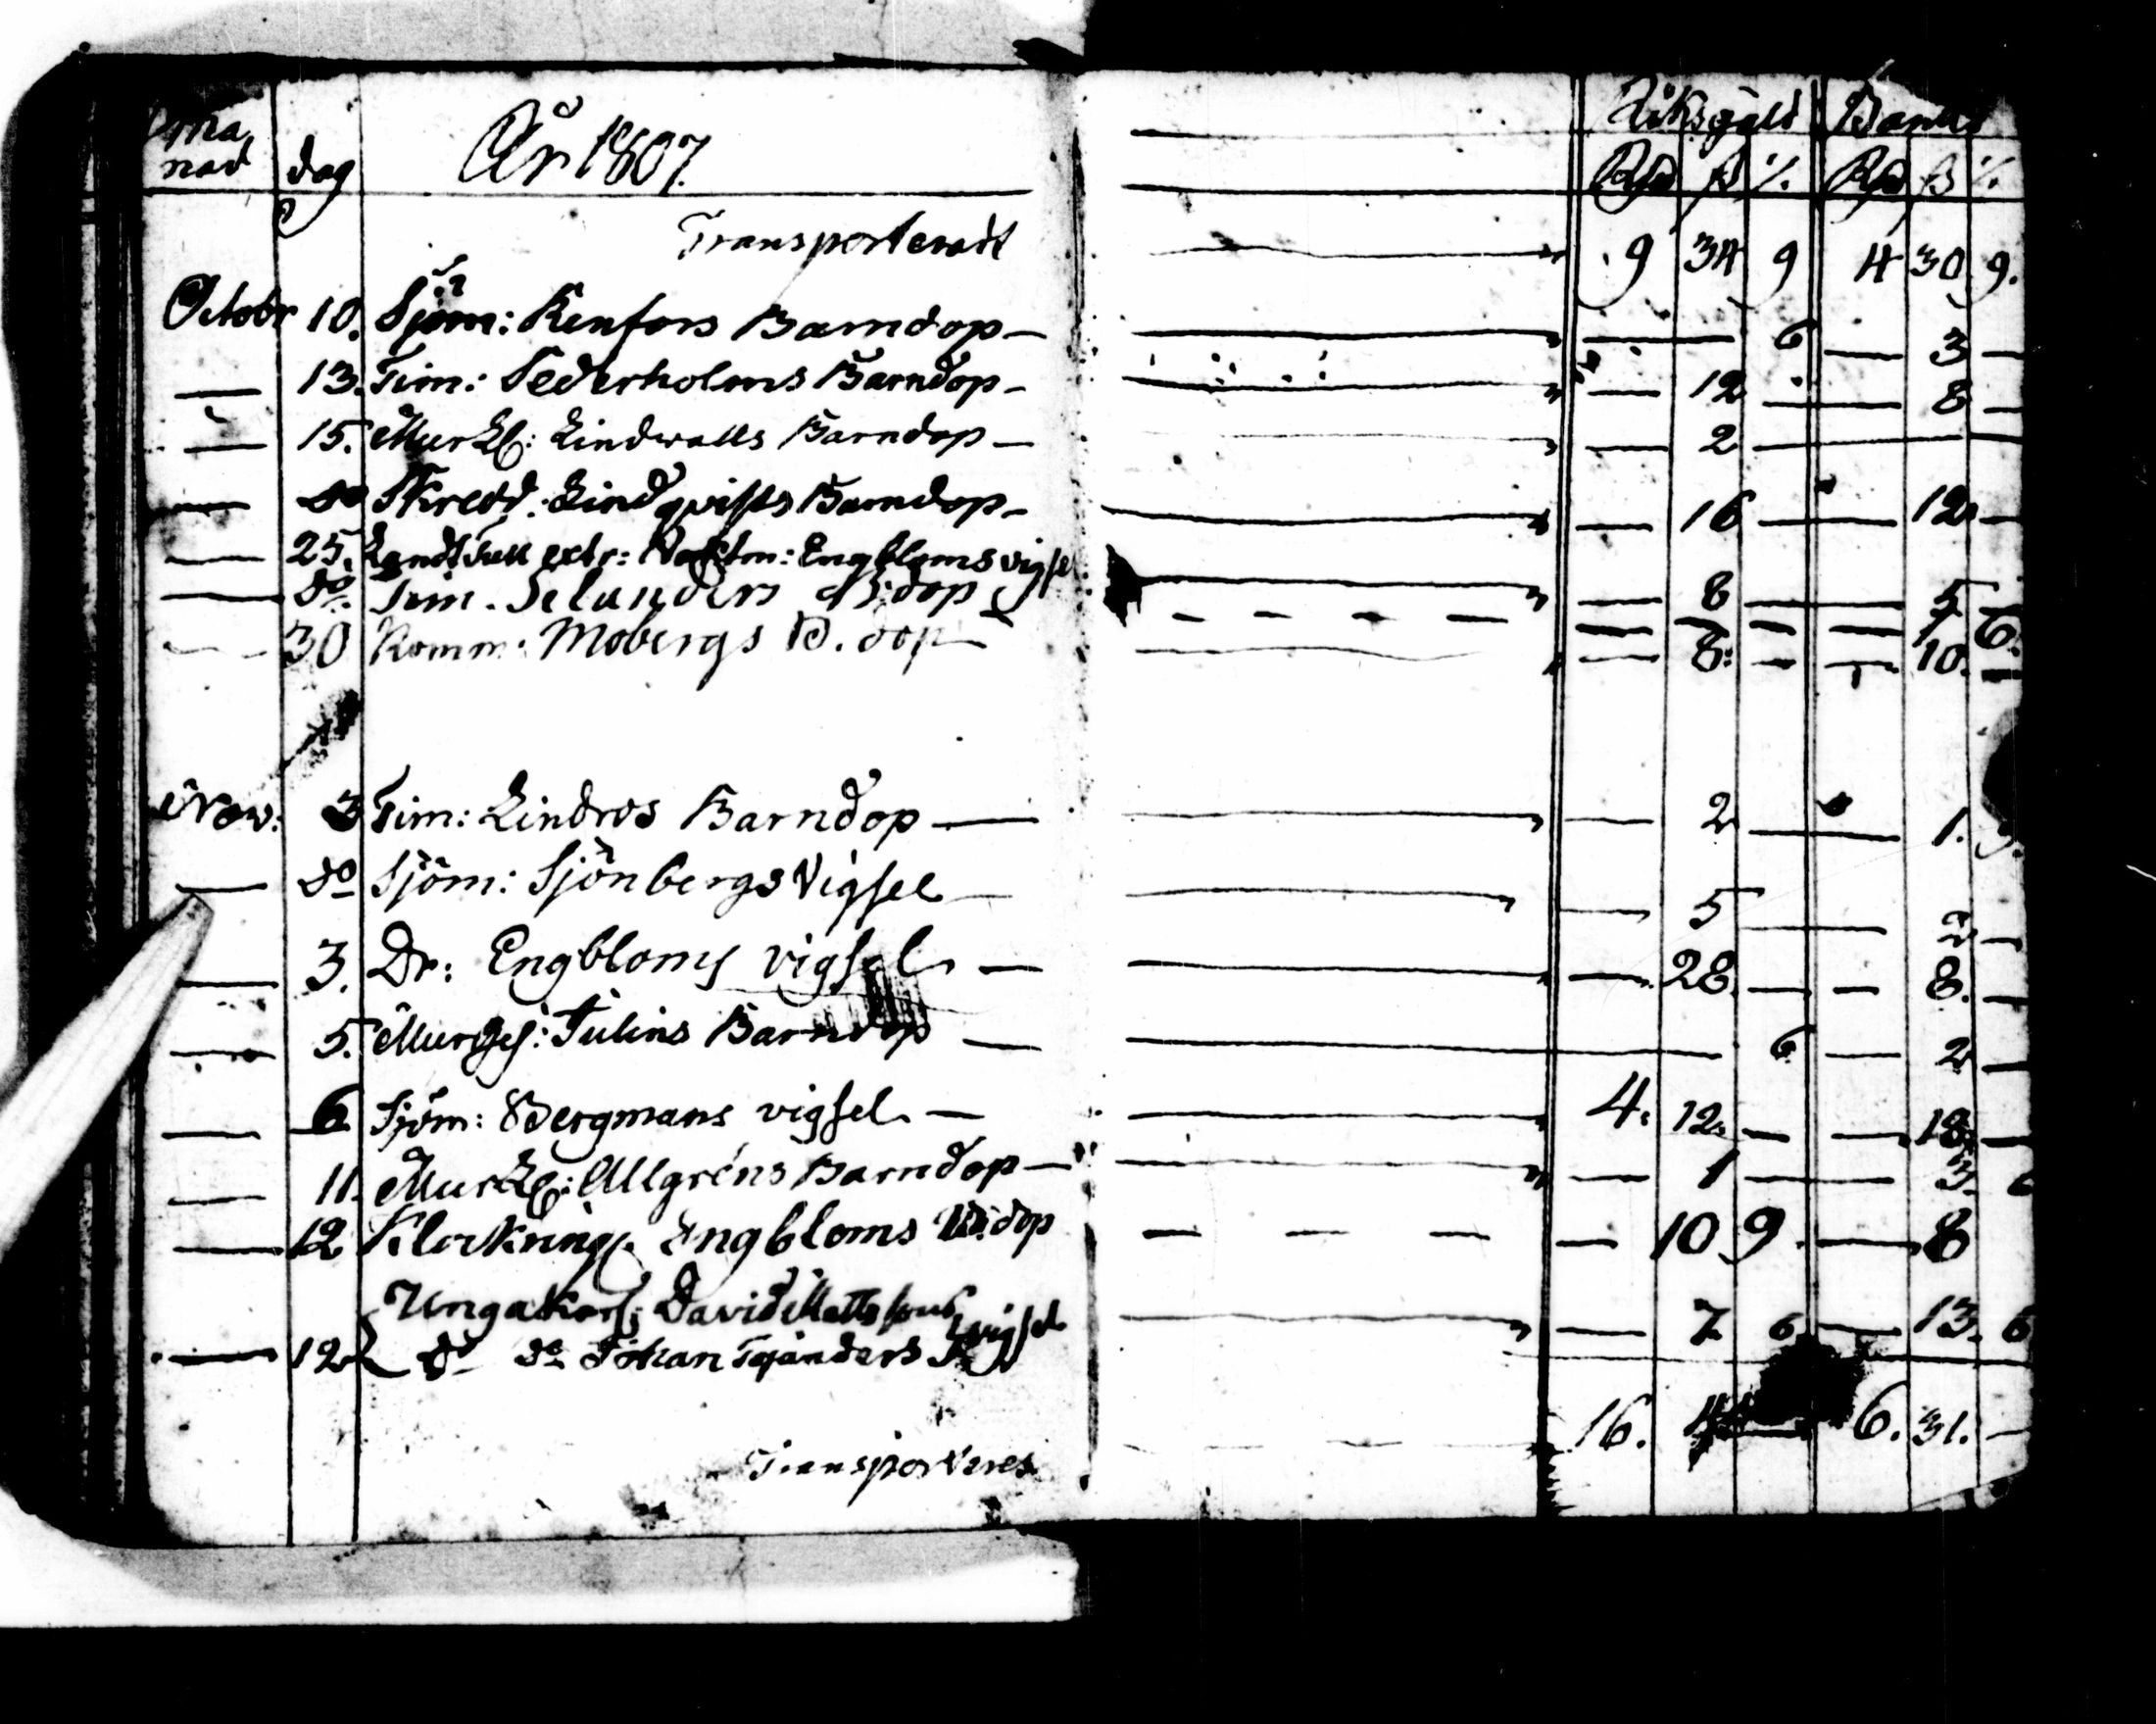 Må
nad dag År 1807. Riksgäld Banco
Rd ß % Rd ß %
Transporteradt 9 34 9 4 30 9.
Octobr 10. Sjöm: Renfors Barndop — 6 — 3 —
— 13. Tim: Sederholms Barndop — 12 — 8 —
— 15. Murkl: Lindwalls Barndop — 2 —
— do Skredd: Lindqvists Barndop — 16 — 12 —
— 25. Landt Tull extr: Vaktm: Engbloms vigsel — 8 — 5
— do Tim. Selanders B:dop — — — 6.
— 30 Komm: Mobergs B. dop — 8: — 10. —
Nov: 3 Tim: Lindros Barndop — 2 — 1.
— do Sjöm: Sjönbergs Vigsel — 5 — 2 —
— 3. Dr: Engbloms vigsel — 28 — 8. —
— 5. Murges: Julins Barndop — 6 — 2 —
— 6 Sjöm: Bergmans vigsel — 4. 12. — 18. —
— 11. Murkl: Allgréns Barndop — 1 — 3. 6
— 12 Engbloms B:dop — 10 9 — 8
Unga Karl: David Mattssons
— 12 do do Johan Tejanders vigsel — 7 6 — 13. 6
Transporteres 16. 4 — 6. 31. —